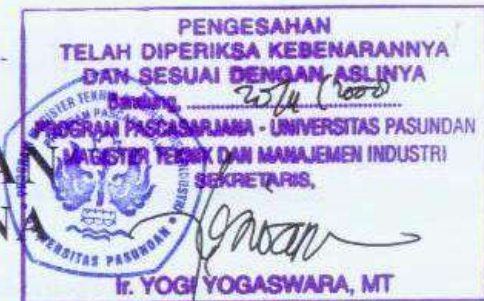 PENGESAHAN
TELAH DIPERIKSA KEBENARANNYA
DAN SESUAI DENGAN ASLINYA
Bandung,
PROGRAM PASCASARJANA - UNIVERSITAS PASUNDAN
MAGISTER TEKNIK DAN MANAJEMEN INDUSTRI
SEKRETARIS,
UNIVERSITAS PASUNDAN
Ir. YOGI YOGASWARA, MT